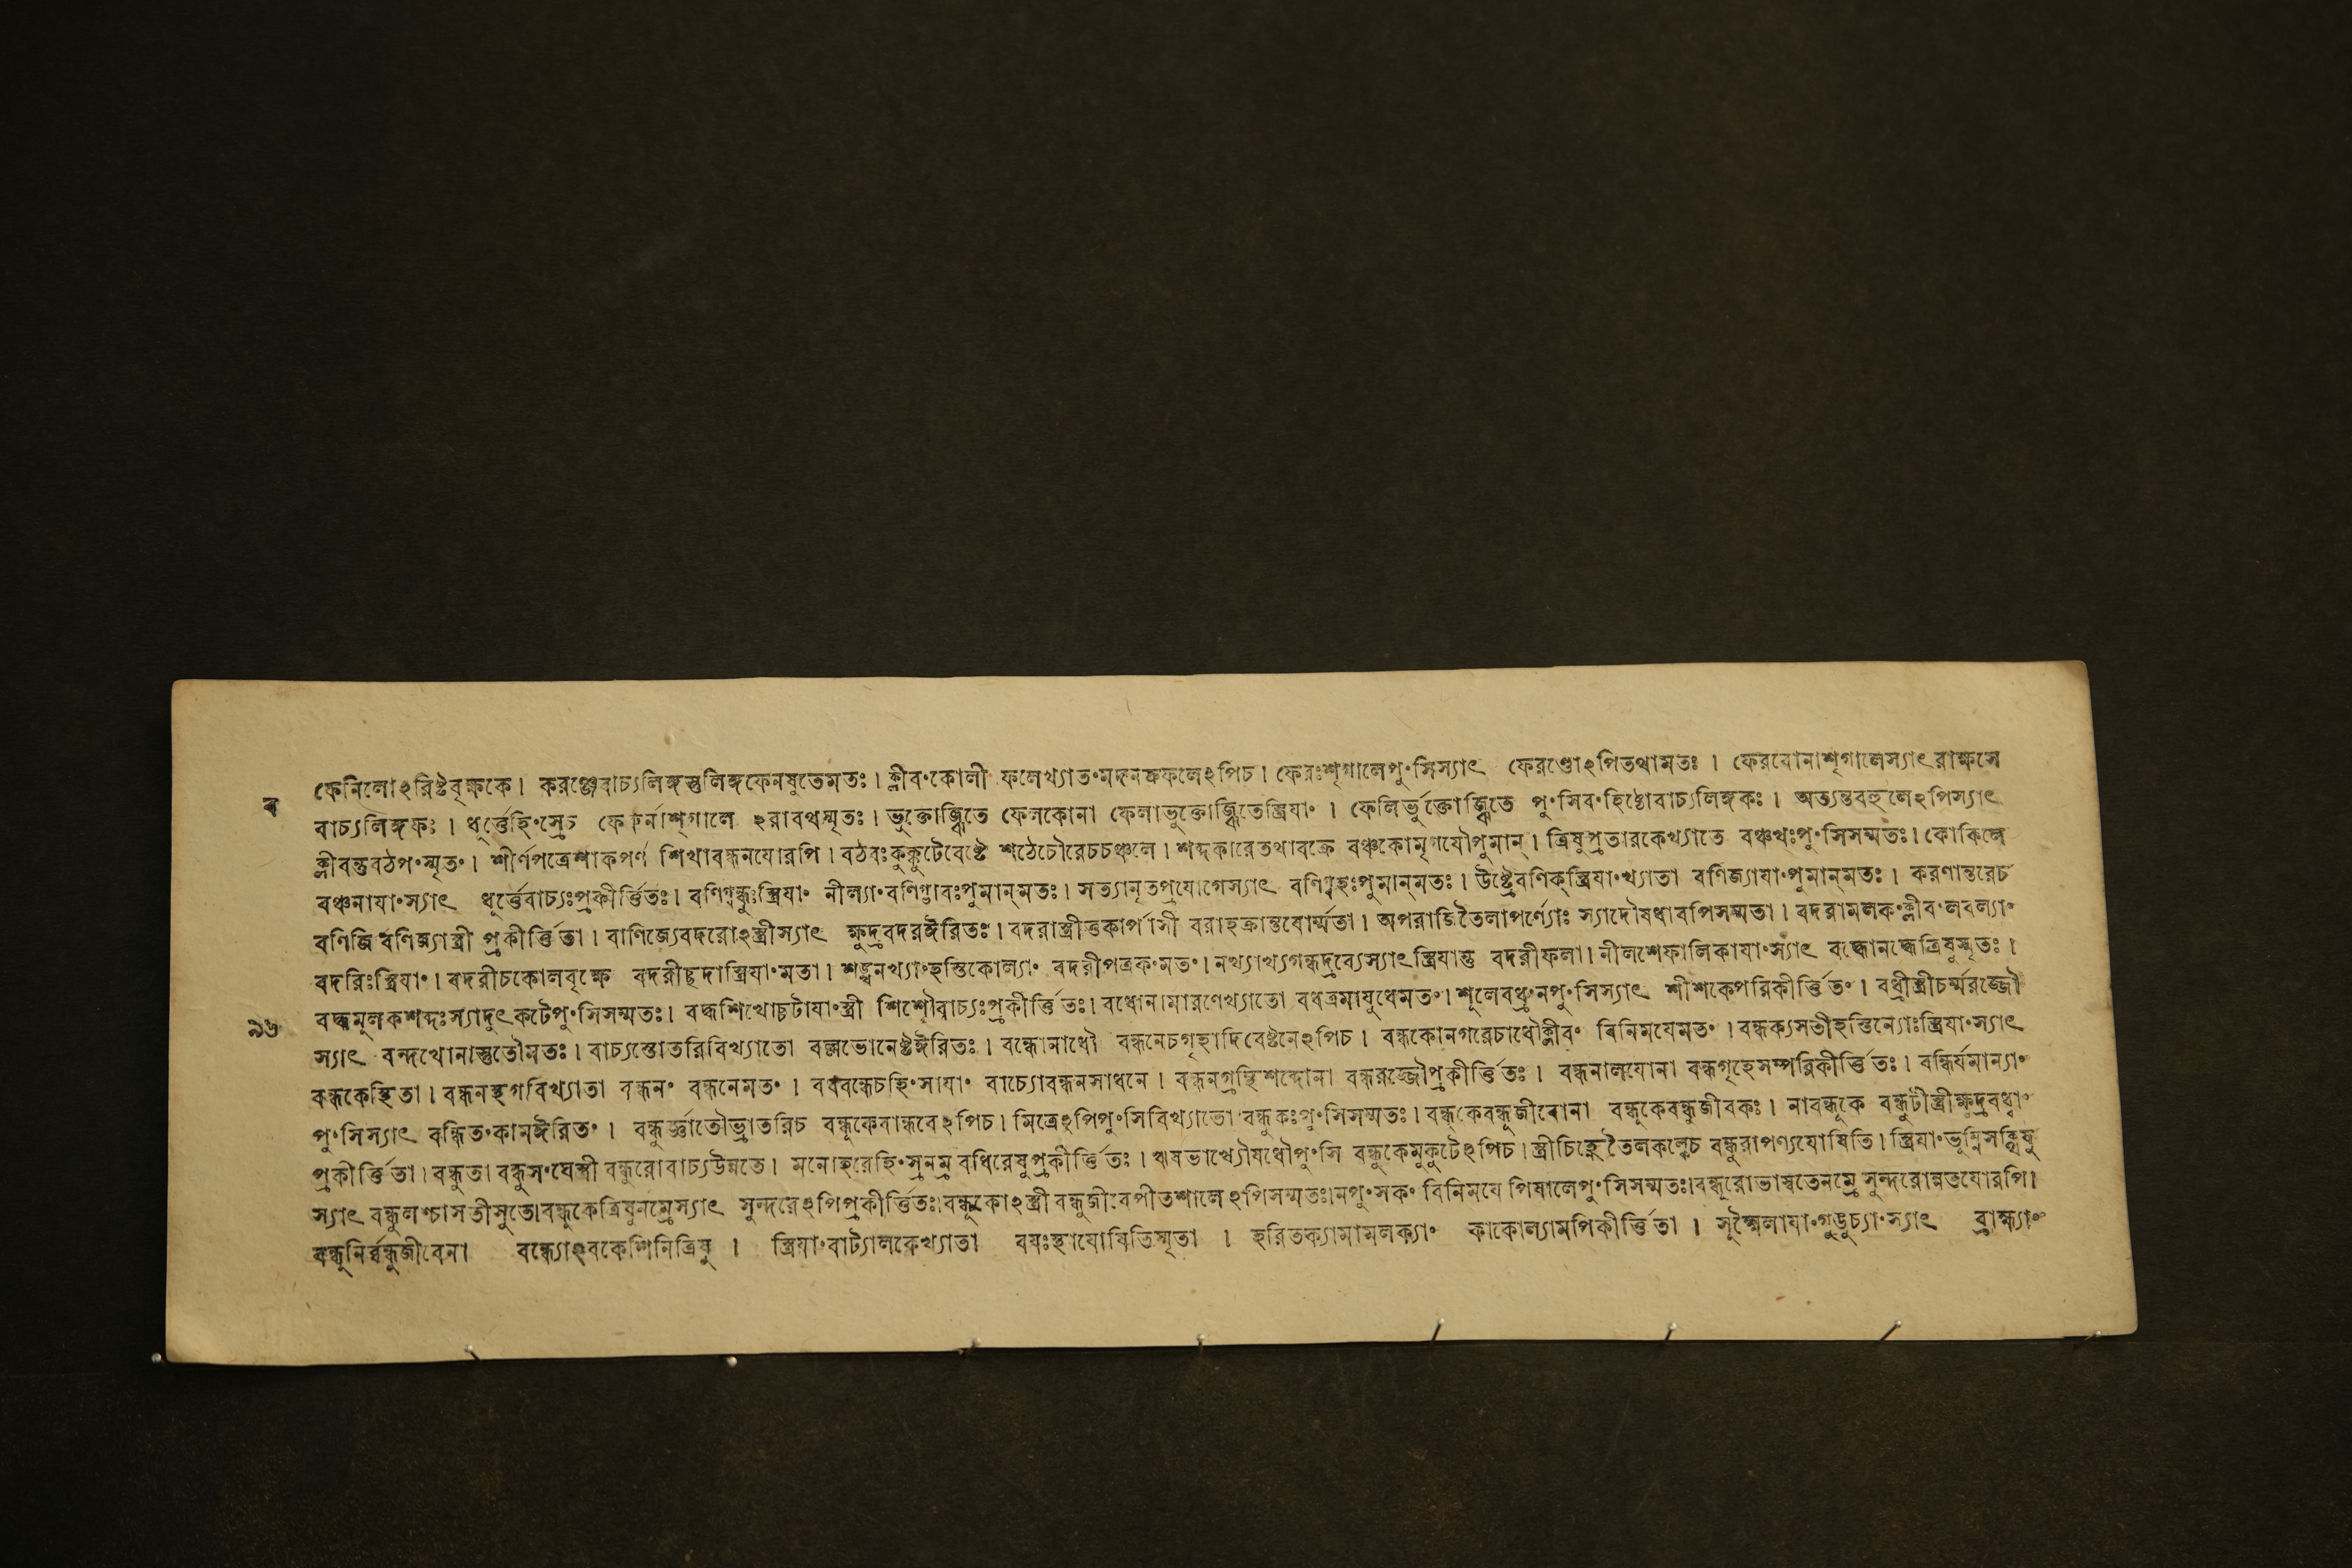 ফেনিলোঽরিষ্টবৃক্ষকে। করঞ্জেবাচ্যলিঙ্গস্তুলিঙ্গফেনযুতেমতঃ। ক্লীবংকোলী ফলেখ্যাতংমদনকফলেঽপিচ। ফেরঃশৃগালেপুংসিস্যাৎ ফেরণ্ডোঽপিতথামতঃ । ফেরবোনাশৃগালেস্যাৎরাক্ষসে
ব
বাচ্যলিঙ্গকঃ । ধূর্ত্তেহিংস্রেচ ফেরুর্নাশৃগালে ঽরাবথস্মৃতঃ। ভুক্তোজ্ঝিতে ফেলকোনা ফেলাভুক্তোজ্ঝিতেস্ত্রিযাং । ফেলির্ভুক্তোজ্ঝিতে পুংসিবংহিষ্ঠোবাচ্যলিঙ্গকঃ । অত্যন্তবহুলেঽপিস্যাৎ
ক্লীবন্তবঠপংস্মৃতং। শীর্ণপত্রেশাকপর্ণ শিখাবন্ধনযোরপি। বঠবঃকুক্কুটেবেষ্টে শঠেচৌরেচচঞ্চলে। শব্দকারেতথাবক্রে বঞ্চকোমৃগযৌপুমান্। ত্রিষুপ্রতারকেখ্যাতে বঞ্চথঃপুংসিসম্মতঃ। কোকিলে
বঞ্চনাযাংস্যাৎ ধূর্ত্তেবাচ্যঃপ্রকীর্ত্তিতঃ। বণিগ্বন্ধুঃস্ত্রিযাং নীল্যাংবণিগ্ভাবঃপুমান্মতঃ। সত্যানৃতপ্রযোগেস্যাৎ বণিগ্বহঃপুমান্মতঃ। উষ্ট্রেবণিক্স্ত্রিযাংখ্যাতা বণিজ্যাযাংপুমান্মতঃ। করণান্তরেচ
বণিজি বণিজ্যাস্ত্রী প্রকীর্ত্তিতা। বাণিজ্যেবদরোঽস্ত্রীস্যাৎ ক্ষুদ্রবদরঈরিতঃ। বদরাস্ত্রীত্তকার্পাসী বরাহক্রান্তবোর্ম্মতা। অপরাজিতৈলাপর্ণ্যোঃ স্যাদৌষধাবপিসম্মতা। বদরামলকংক্লীবংলবল্যাং
বদরিঃস্ত্রিযাং। বদরীচকোলবৃক্ষে বদরীছদাস্ত্রিযাংমতা। শঙ্খনখ্যাংহস্তিকোল্যাং বদরীপত্রকংমতং। নখ্যাখ্যগন্ধদ্রব্যেস্যাৎস্ত্রিযান্তু বদরীফলা। নীলশেফালিকাযাংস্যাৎ বদ্ধোনদ্ধেত্রিষুস্মৃতঃ।
বদ্ধমূলকশব্দঃস্যাদুৎকটেপুংসিসম্মতঃ। বদ্ধশিখোচ্চটাযাংস্ত্রী শিশৌবাচ্যঃপ্রকীর্ত্তিতঃ। বধোনামারণেখ্যাতো বধত্রমাযুধেমতং। শূলেবধ্রংনপুংসিস্যাৎ শীশকেপরিকীর্ত্তিতং। বধ্রীস্ত্রীচর্ম্মরজ্জৌ
৯৬
স্যাৎ বন্দথোনাস্তুতৌমতঃ। বাচ্যস্তোতরিবিখ্যাতো বল্লভোনেষ্টঈরিতঃ। বন্ধোনাধৌ বন্ধনেচগৃহাদিবেষ্টনেঽপিচ। বন্ধকোনগরেচাধৌক্লীবং বিনিমযেমতং। বন্ধক্যসতীহস্তিন্যোঃস্ত্রিযাংস্যাৎ
বন্ধকেস্থিতা। বন্ধনস্থগবিখ্যাতা বন্ধনং বন্ধনেমতং । বধবন্ধেচহিংসাযাং বাচ্যোবন্ধনসাধনে। বন্ধনগ্রন্থিশব্দোনা বন্ধরজ্জৌপ্রকীর্ত্তিতঃ। বন্ধনালযোনা বন্ধগৃহেসম্পরিকীর্ত্তিতঃ। বন্ধির্যমান্যাং
পুংসিস্যাৎ বন্ধিতংকামঈরিতং। বন্ধুর্জ্ঞাতৌভ্রাতরিচ বন্ধূকেবান্ধবেঽপিচ। মিত্রেঽপিপুংসিবিখ্যাতো বন্ধুকঃপুংসিসম্মতঃ। বন্ধূকেবন্ধুজীবোনা বন্ধুকেবন্ধুজীবকঃ। নাবন্ধূকে বন্ধুটীস্ত্রীক্ষুদ্রবধ্বাং
প্রকীর্ত্তিতা। বন্ধুতা বন্ধুসংঘেস্ত্রী বন্ধুরোবাচ্যউন্নতে। মনোহরেহিংস্রনম্র বধিরেষুপ্রকীর্ত্তিতঃ। ঋষভাখ্যৌষধৌপুংসি বন্ধুকেমুকুটেঽপিচ। স্ত্রীচিহ্নেতৈলকল্কেচ বন্ধুরাপণ্যযোষিতি। স্ত্রিযাংভূম্নিসক্তুষু
স্যাৎ বন্ধুলশ্চাসতীসুতে।বন্ধুকেত্রিষুনম্রেস্যাৎ সুন্দরেঽপিপ্রকীর্ত্তিতঃ।বন্ধূকোঽস্ত্রী বন্ধুজীবেপীতশালেঽপিসম্মতঃ।নপুংসকং বিনিমযে পিযালেপুংসিসম্মতঃ।বন্ধূরোভাস্বতেনম্রে সুন্দরোন্নতযোরপি।
বন্ধূনির্ব্বন্ধুজীবেনা বন্ধ্যোঽবকেশিনিত্রিষু । স্ত্রিযাংবাট্যালকেখ্যাতা বযঃস্থাযোষিতিস্মৃতা । হরিতক্যামামলক্যাং কাকোল্যামপিকীর্ত্তিতা । সূক্ষ্মৈলাযাংগুড়ুচ্যাংস্যাৎ ব্রাহ্ম্যাং